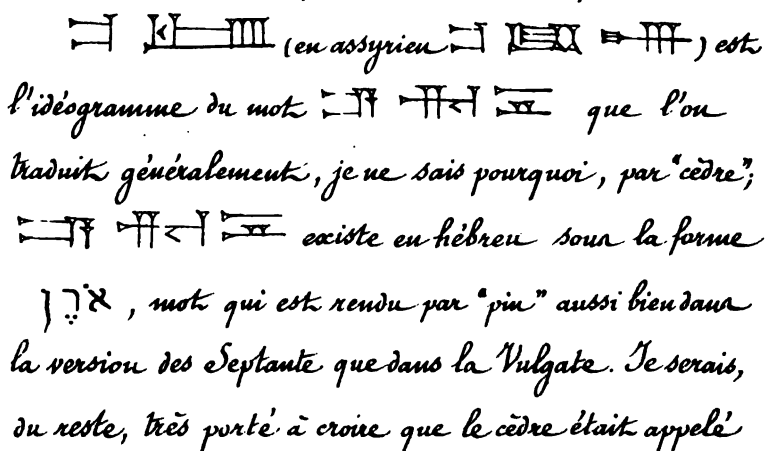 (en assyrien ) est
l'idéogramme du mot que l'on
traduit généralement, je ne sais pourquoi, par "cèdre";
existe en hébreu sous la forme
אֹרֶן, mot qui est rendu par "pin" aussi bien dans
la version des Septante que dans la Vulgate. Je serais,
du reste, très porté à croire que le cèdre était appelé